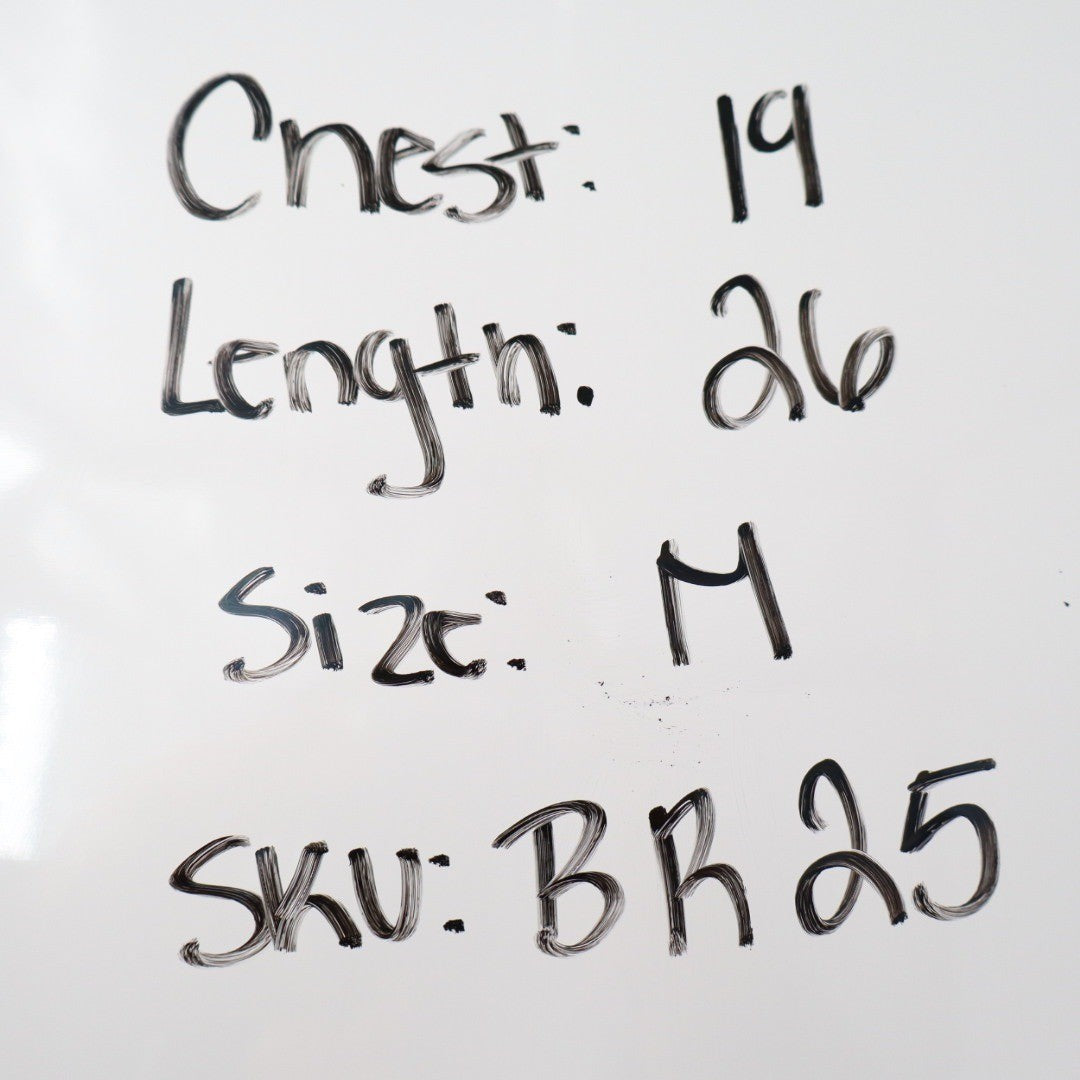 Chest: 19
Length: 26
Size: M
SKU: BR25